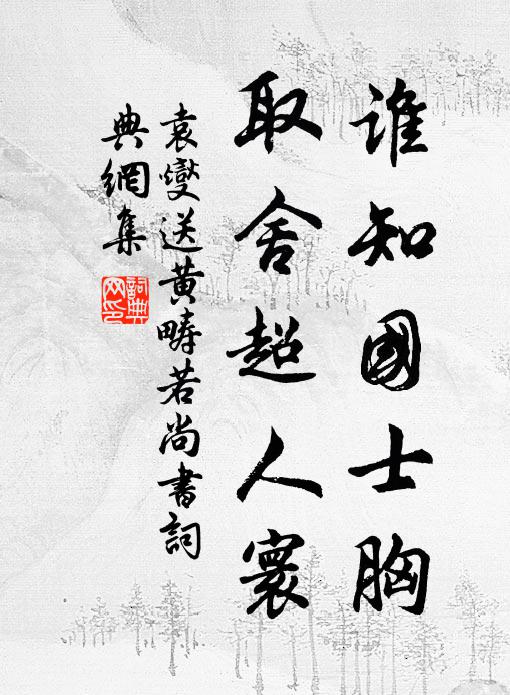 誰知國士胸
取舍超人寰
袁燮送黃疇若尚書詞
典網集
詞典
网印